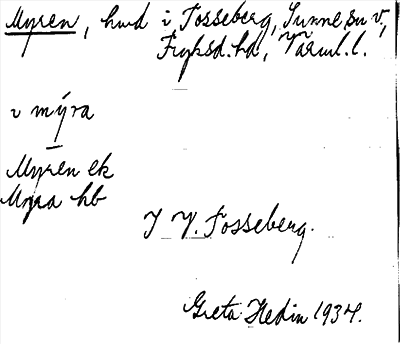 Myren, hmd i Tosseberg, Sunne sn v.,
Fryksd. hd, Värml. l.
i mýra
Myren ek
Myra hb
I V. Tosseberg.
Greta Hedin 1934.